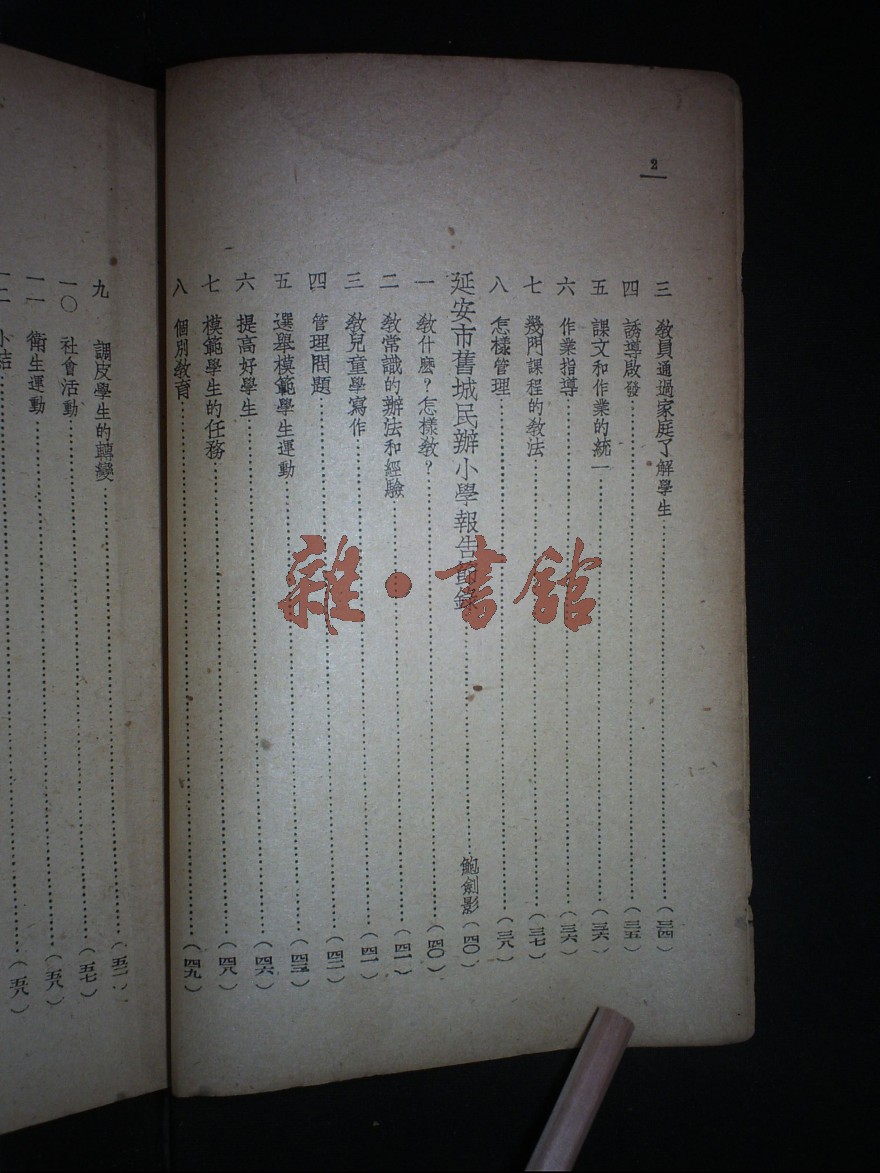 2
三 教員通過家庭了解學生………（三四）
四 誘導啟發………（三五）
五 課文和作業的統一………（三六）
六 作業指導………（三六）
七 幾門課程的教法………（三七）
八 怎樣管理………（三八）
延安市舊城民辦小學報告節錄………鮑劍影（四〇）
一 教什麼？怎樣教？………（四〇）
二 教常識的辦法和經驗………（四一）
三 教兒童學寫作………（四一）
四 管理問題………（四二）
五 選舉模範學生運動………（四三）
六 提高好學生………（四六）
七 模範學生的任務………（四八）
八 個別教育………（四九）
九 調皮學生的轉變………（五二）
一〇 社會活動………（五七）
一一 衛生運動………（五八）
一二 小結………（五八）
雜·書館